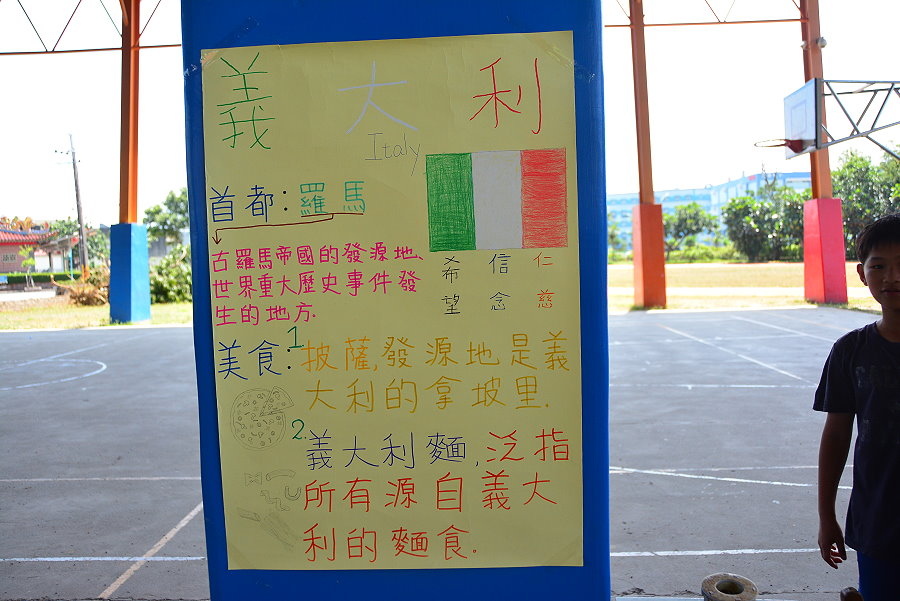 義大利
Italy
首都：羅馬
古羅馬帝國的發源地、
世界重大歷史事件發
生的地方.
希望
信念
仁慈
美食：1.披薩,發源地是義
大利的拿坡里.
2.義大利麵,泛指
所有源自義大
利的麵食.